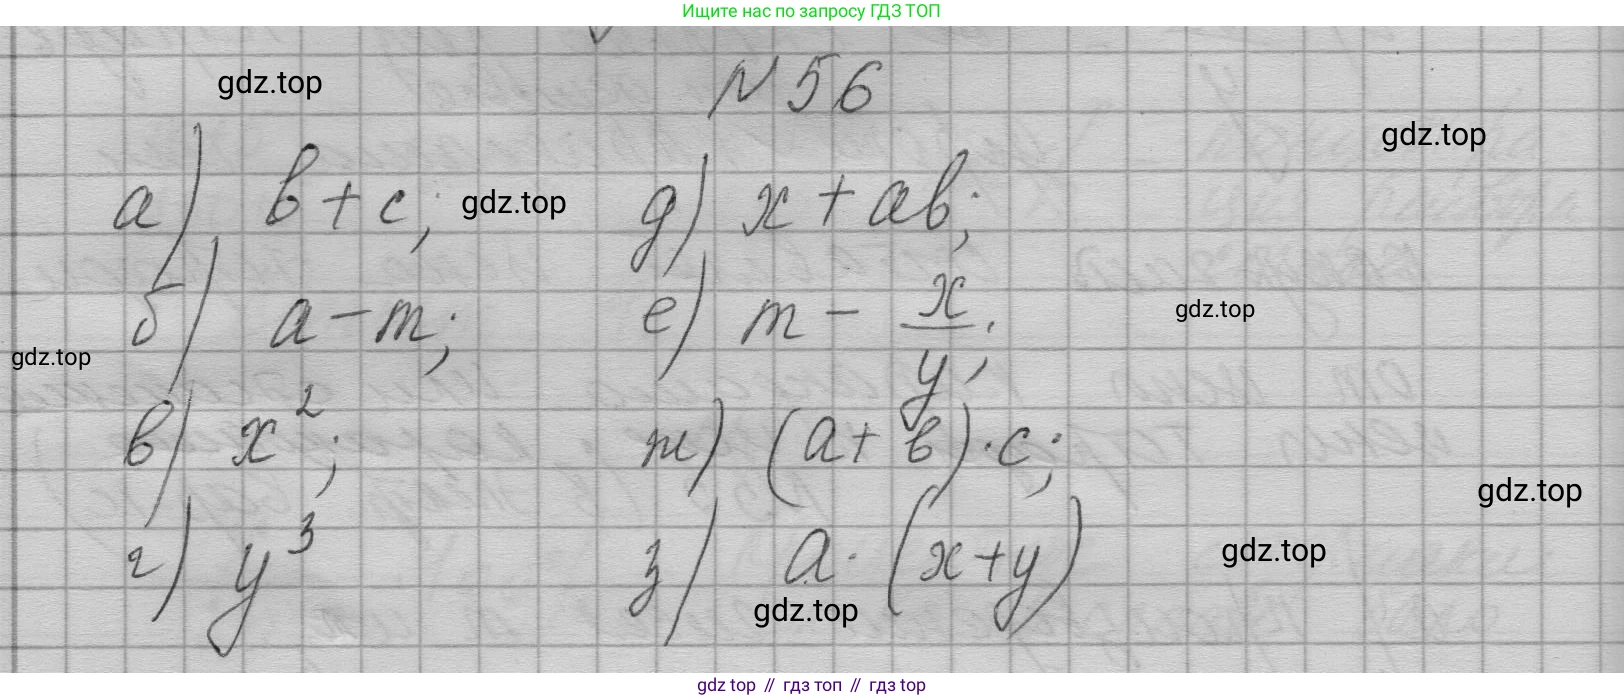 Ищите нас по запросу ГДЗ ТОП
gdz.top
N 56
gdz.top
а) b + c;
gdz.top
д) x + ab;
б) a - m;
е) m - x/y;
gdz.top
gdz.top
в) x²;
ж) (a + b) · c;
gdz.top
г) y³
з) a · (x + y)
gdz.top
gdz.top
gdz top // гдз топ // гдз top